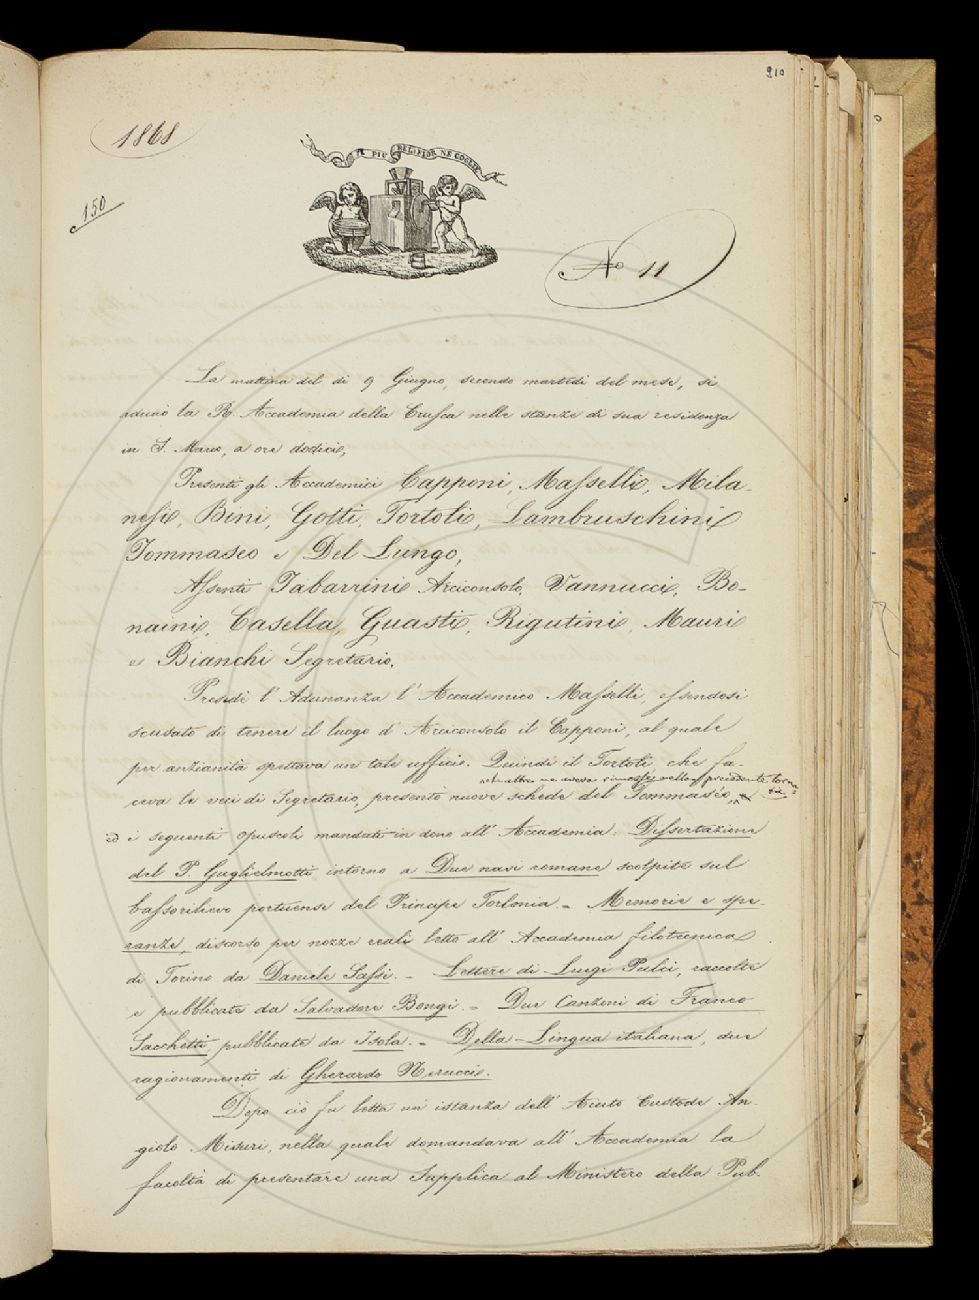 210
1868
150
IL PIÙ BEL FIOR NE COGLIE
No 11
La mattina del dì 9 Giugno, secondo martedì del mese, si
adunò la R. Accademia della Crusca nelle stanze di sua residenza
in S. Marco, a ore dodici,
Presenti gli Accademici Capponi, Masselli, Mila-
nesi, Bini, Gotti, Tortoli, Lambruschini
Tommaseo e Del Lungo,
Assenti Tabarrini Arciconsolo, Vannucci, Bo-
naini, Casella, Guasti, Rigutini, Mauri
e Bianchi Segretario.
Presedé l'Adunanza l'Accademico Masselli, essendosi
scusato di tenere il luogo d'Arciconsolo il Capponi, al quale
per anzianità spettava un tale ufficio. Quindi il Tortoli, che fa-
altre ne aveva rimesse nella precedente torna-
ta
ceva le veci di Segretario, presentò nuove schede del Tommasèo,
ed i seguenti opuscoli mandati in dono all'Accademia. Dissertazione
del P. Guglielmotti intorno a Due navi romane scolpite sul
bassorilievo portuense del Principe Torlonia. - Memorie e spe-
ranze, discorso per nozze reali letto all'Accademia filotecnica
di Torino da Daniele Sassi. - Lettere di Luigi Pulci, raccolte
e pubblicate da Salvadore Bongi. - Due Canzoni di Franco
Sacchetti, pubblicate da Isola. - Della Lingua italiana, due
ragionamenti di Gherardo Nerucci.
Dopo ciò fu letta un'istanza dell'Aiuto Custode An-
giolo Misuri, nella quale domandava all'Accademia la
facoltà di presentare una Supplica al Ministero della Pub-